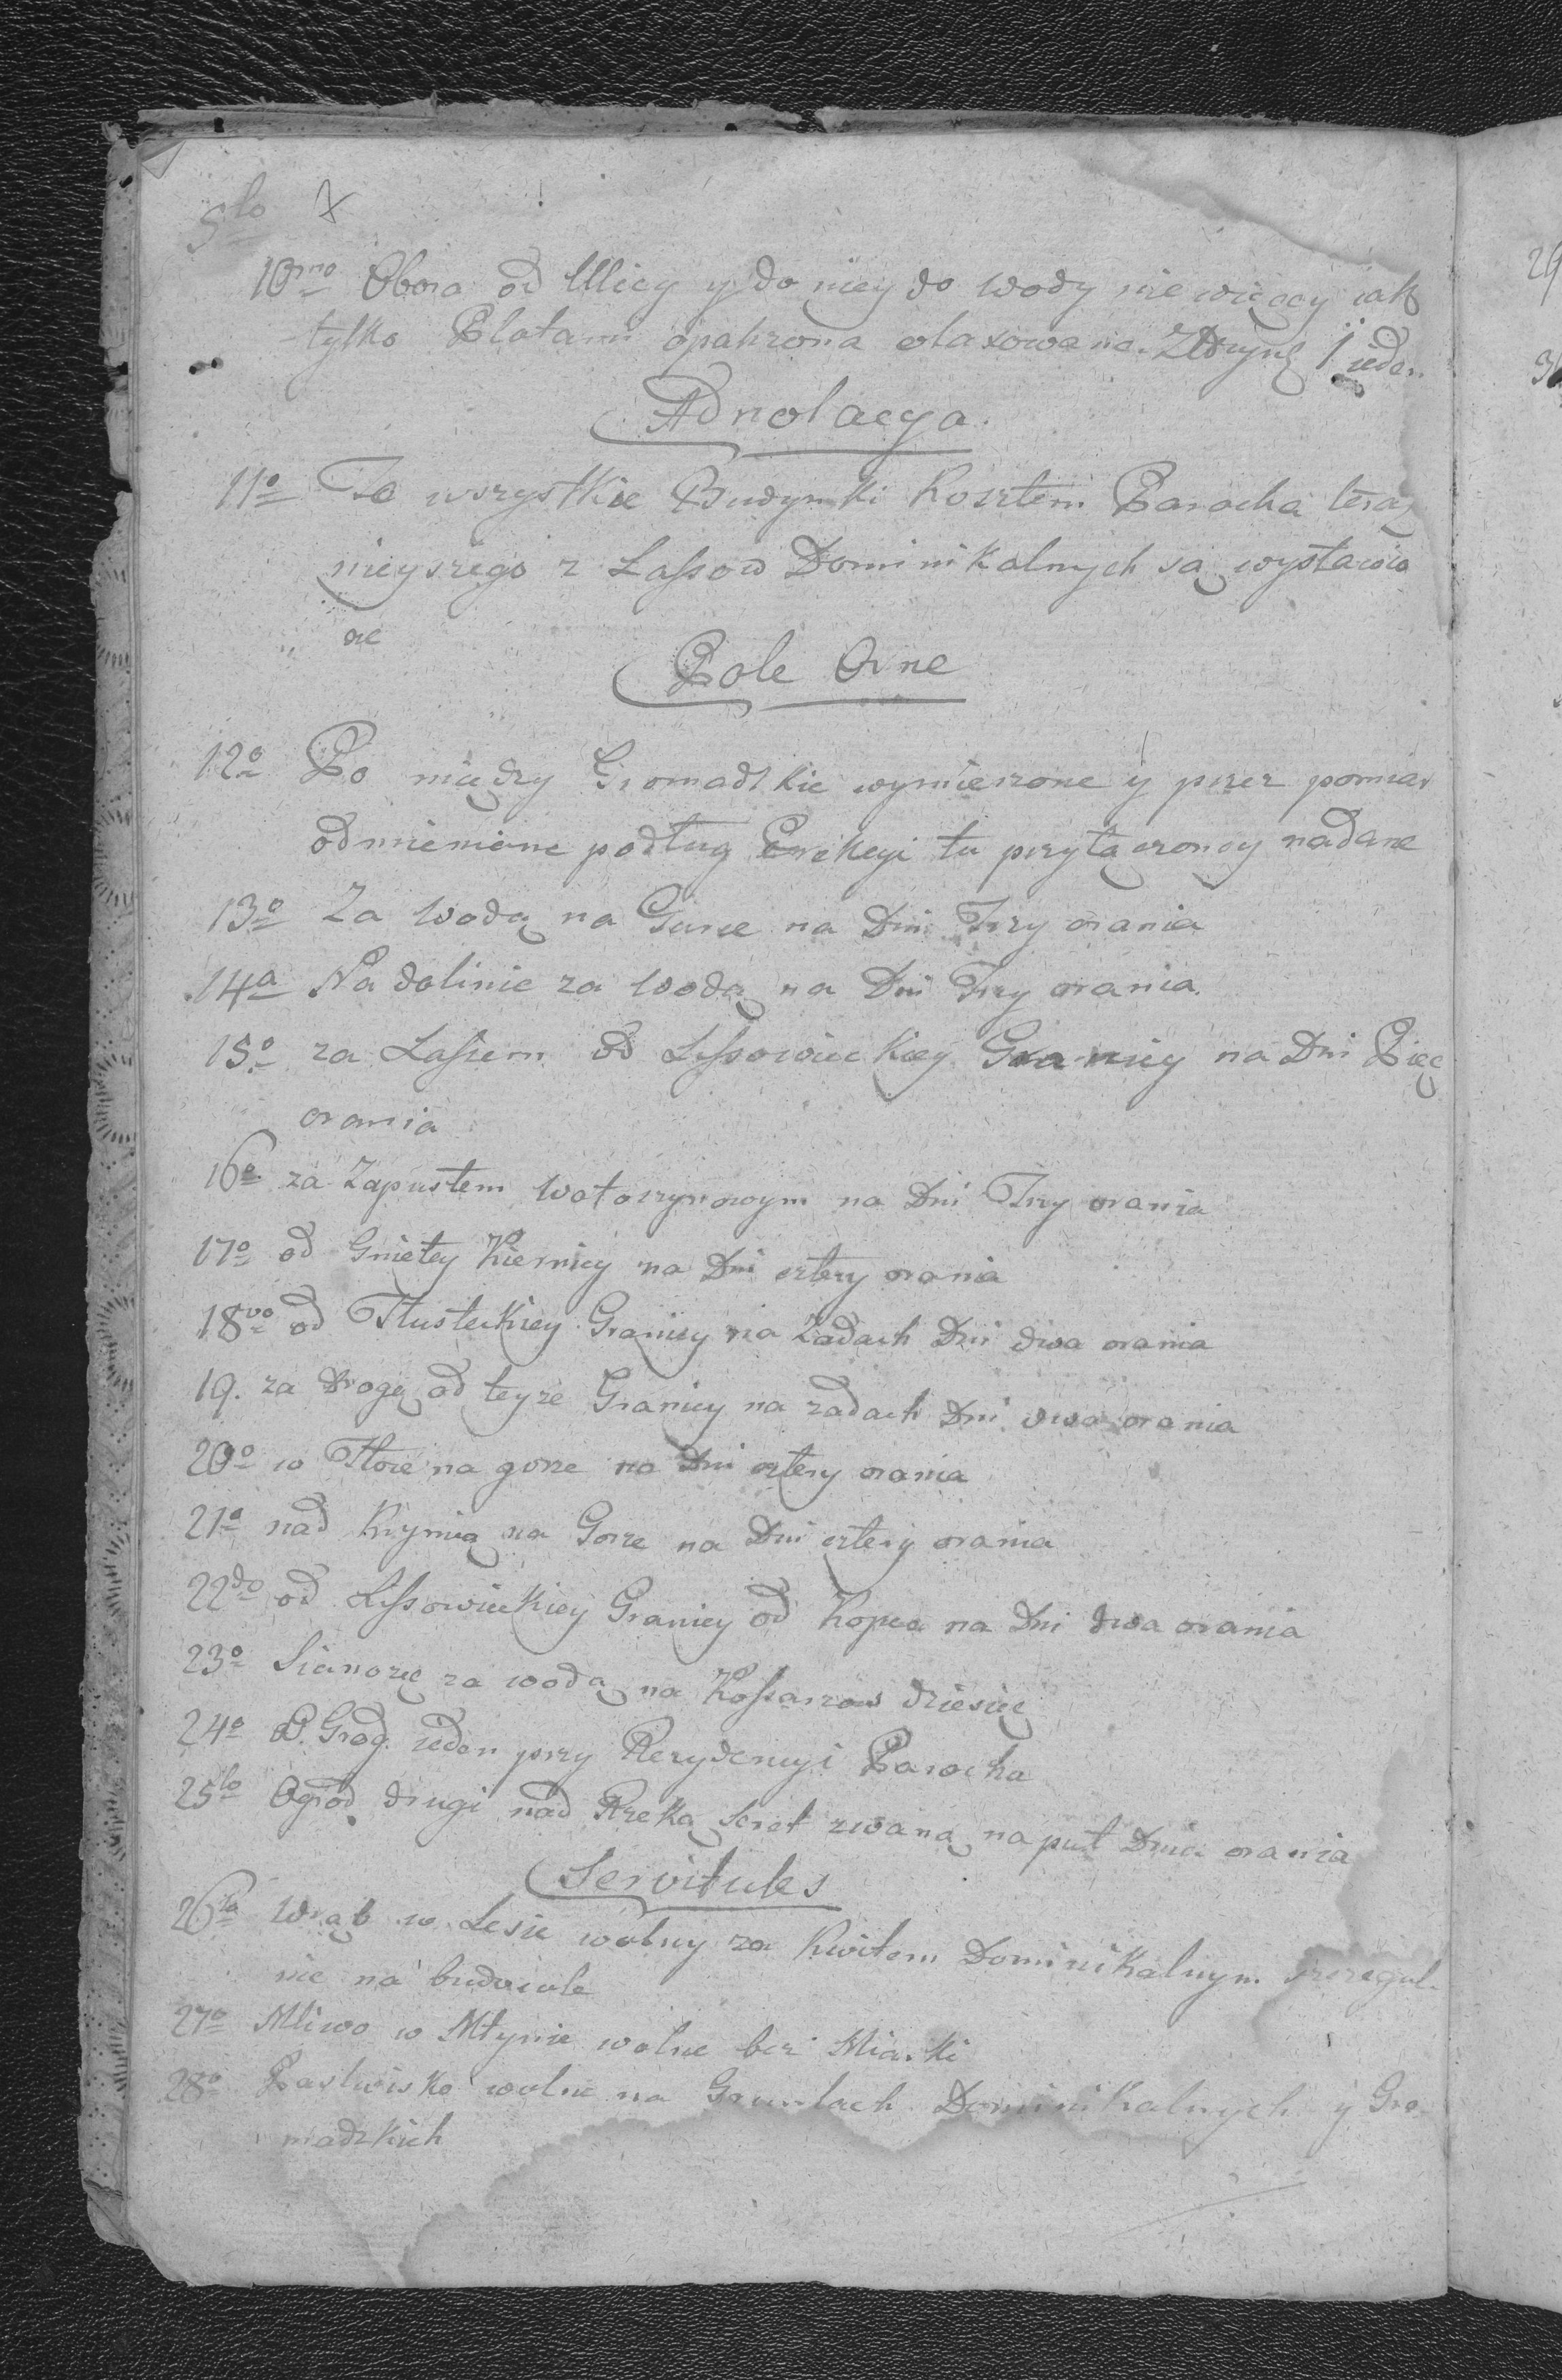 5to X
10mo Obora od Ulicy y do niey do wody nie więcey iak
tylko Płotami opatrzona otaxowana Zł Ryns 1 ieden.
Adnotacya.
11o Te wszystkie Budynki Kosztem Parocha teraz
nieyszego z Lassow Dominikalnych są wystawio
ne
Pole Orne
12o Po między Gromadzkie wymierzone y przez pomiar
odmienione podług Erekcyi tu przyłączoney nadane
13o Za Wodą na Gurze na Dni Trzy orania
14o Na dolinie za Wodą na Dni Trzy orania.
15o za Lassem od Lissowieckiey Granicy na Dni Pięć
orania
16o za Zapustem Wołoszynowym na Dni Trzy orania
17o od Gniłey Kiernicy na Dni cztery orania
18vo od Tłusteckiey Granicy na Zadach Dni dwa orania
19. za Drogą od teyze Granicy na zadach Dni dwa orania
20o w Tłoce na gorze na Dni cztery orania
21o nad Krynicą na Gorze na Dni cztery orania
22do od Lissowieckiey Granicy od Kopca na Dni dwa orania
23o Sianozęc za wodą na Kossarzow dziesięc
24o O. Grod. ieden przy Rezydencyi Parocha
25to Ogrod drugi nad Rzeką Seret zwaną na puł Dnia orania
Servitutes
26to Wrąb w Lesie wolny za Kwitem Dominikalnym szczegul-
nie na budowle
27o Mliwo w Młynie wolne bez Miarki
28o Pastwisko wolne na Gruntach Dominikalnych y Gro-
madzkich